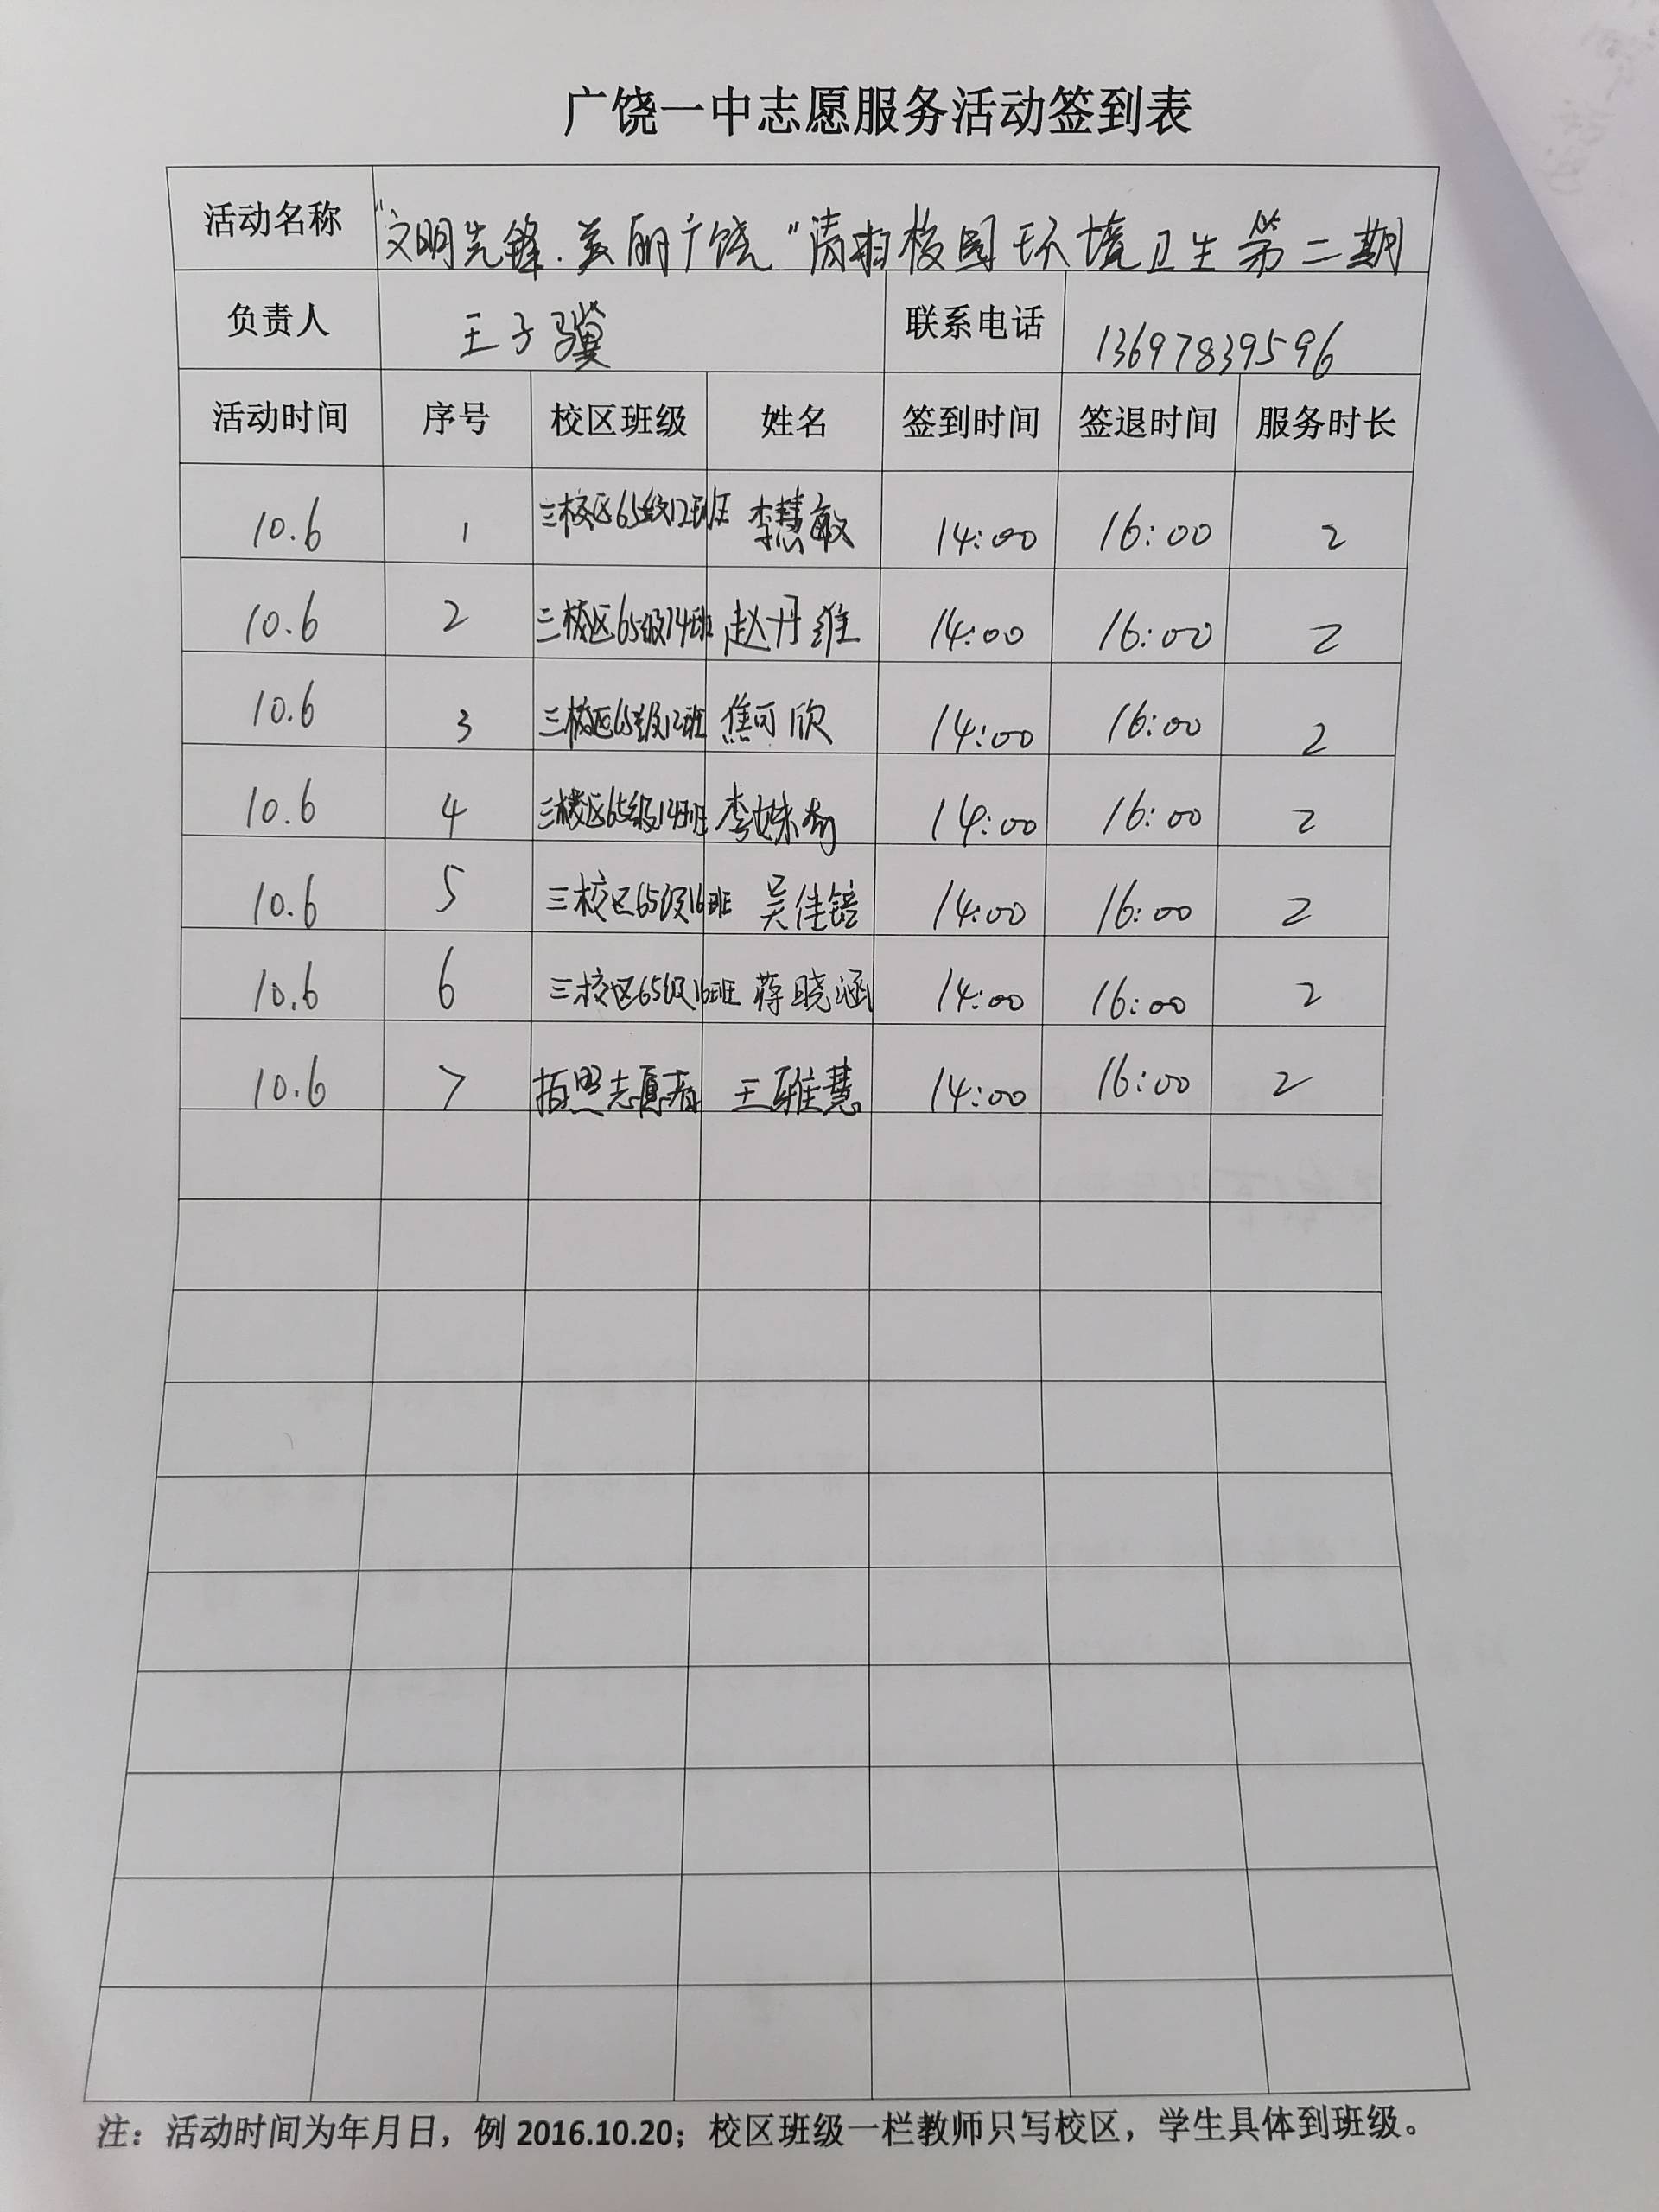 广饶一中志愿服务活动签到表
活动名称 “文明先锋·美丽广饶”清扫校园环境卫生第二期
负责人 王子骥 联系电话 13697839596
活动时间 序号 校区班级 姓名 签到时间 签退时间 服务时长
10.6 1 三校区65级12班 李慧敏 14:00 16:00 2
10.6 2 三校区65级14班 赵丹维 14:00 16:00 2
10.6 3 三校区65级12班 焦可欣 14:00 16:00 2
10.6 4 三校区65级14班 李姝 14:00 16:00 2
10.6 5 三校区65级16班 吴佳锫 14:00 16:00 2
10.6 6 三校区65级16班 蒋晓涵 14:00 16:00 2
10.6 7 拍照志愿者 王雅慧 14:00 16:00 2
注：活动时间为年月日，例 2016.10.20；校区班级一栏教师只写校区，学生具体到班级。